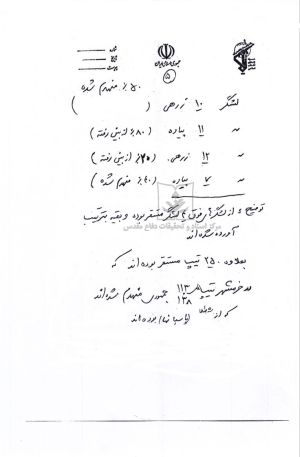 جمهوری اسلامی ایران
شماره
تاریخ
پیوست
۵
۵۰٪ منهدم شده
لشکر ۱۰ زرهی ( )
" ۱۱ پیاده (۸۰٪ از بین رفته)
" ۱۲ زرهی (۲۰٪ از بین رفته)
" ۷ پیاده (۴۰٪ منهدم شده)
توضیح ۴ از لشگر فوق لشگر مستقر بوده و بقیه بترتیب
مرکز اسناد و تحقیقات دفاع مقدس
آورده شده‌اند
بعلاوه ۲۵۰ تیپ مستقر بوده‌اند که
در خرمشهر تیپ ۱۱۳ منهدم شده‌اند
۱۳۸
که از بوده‌اند